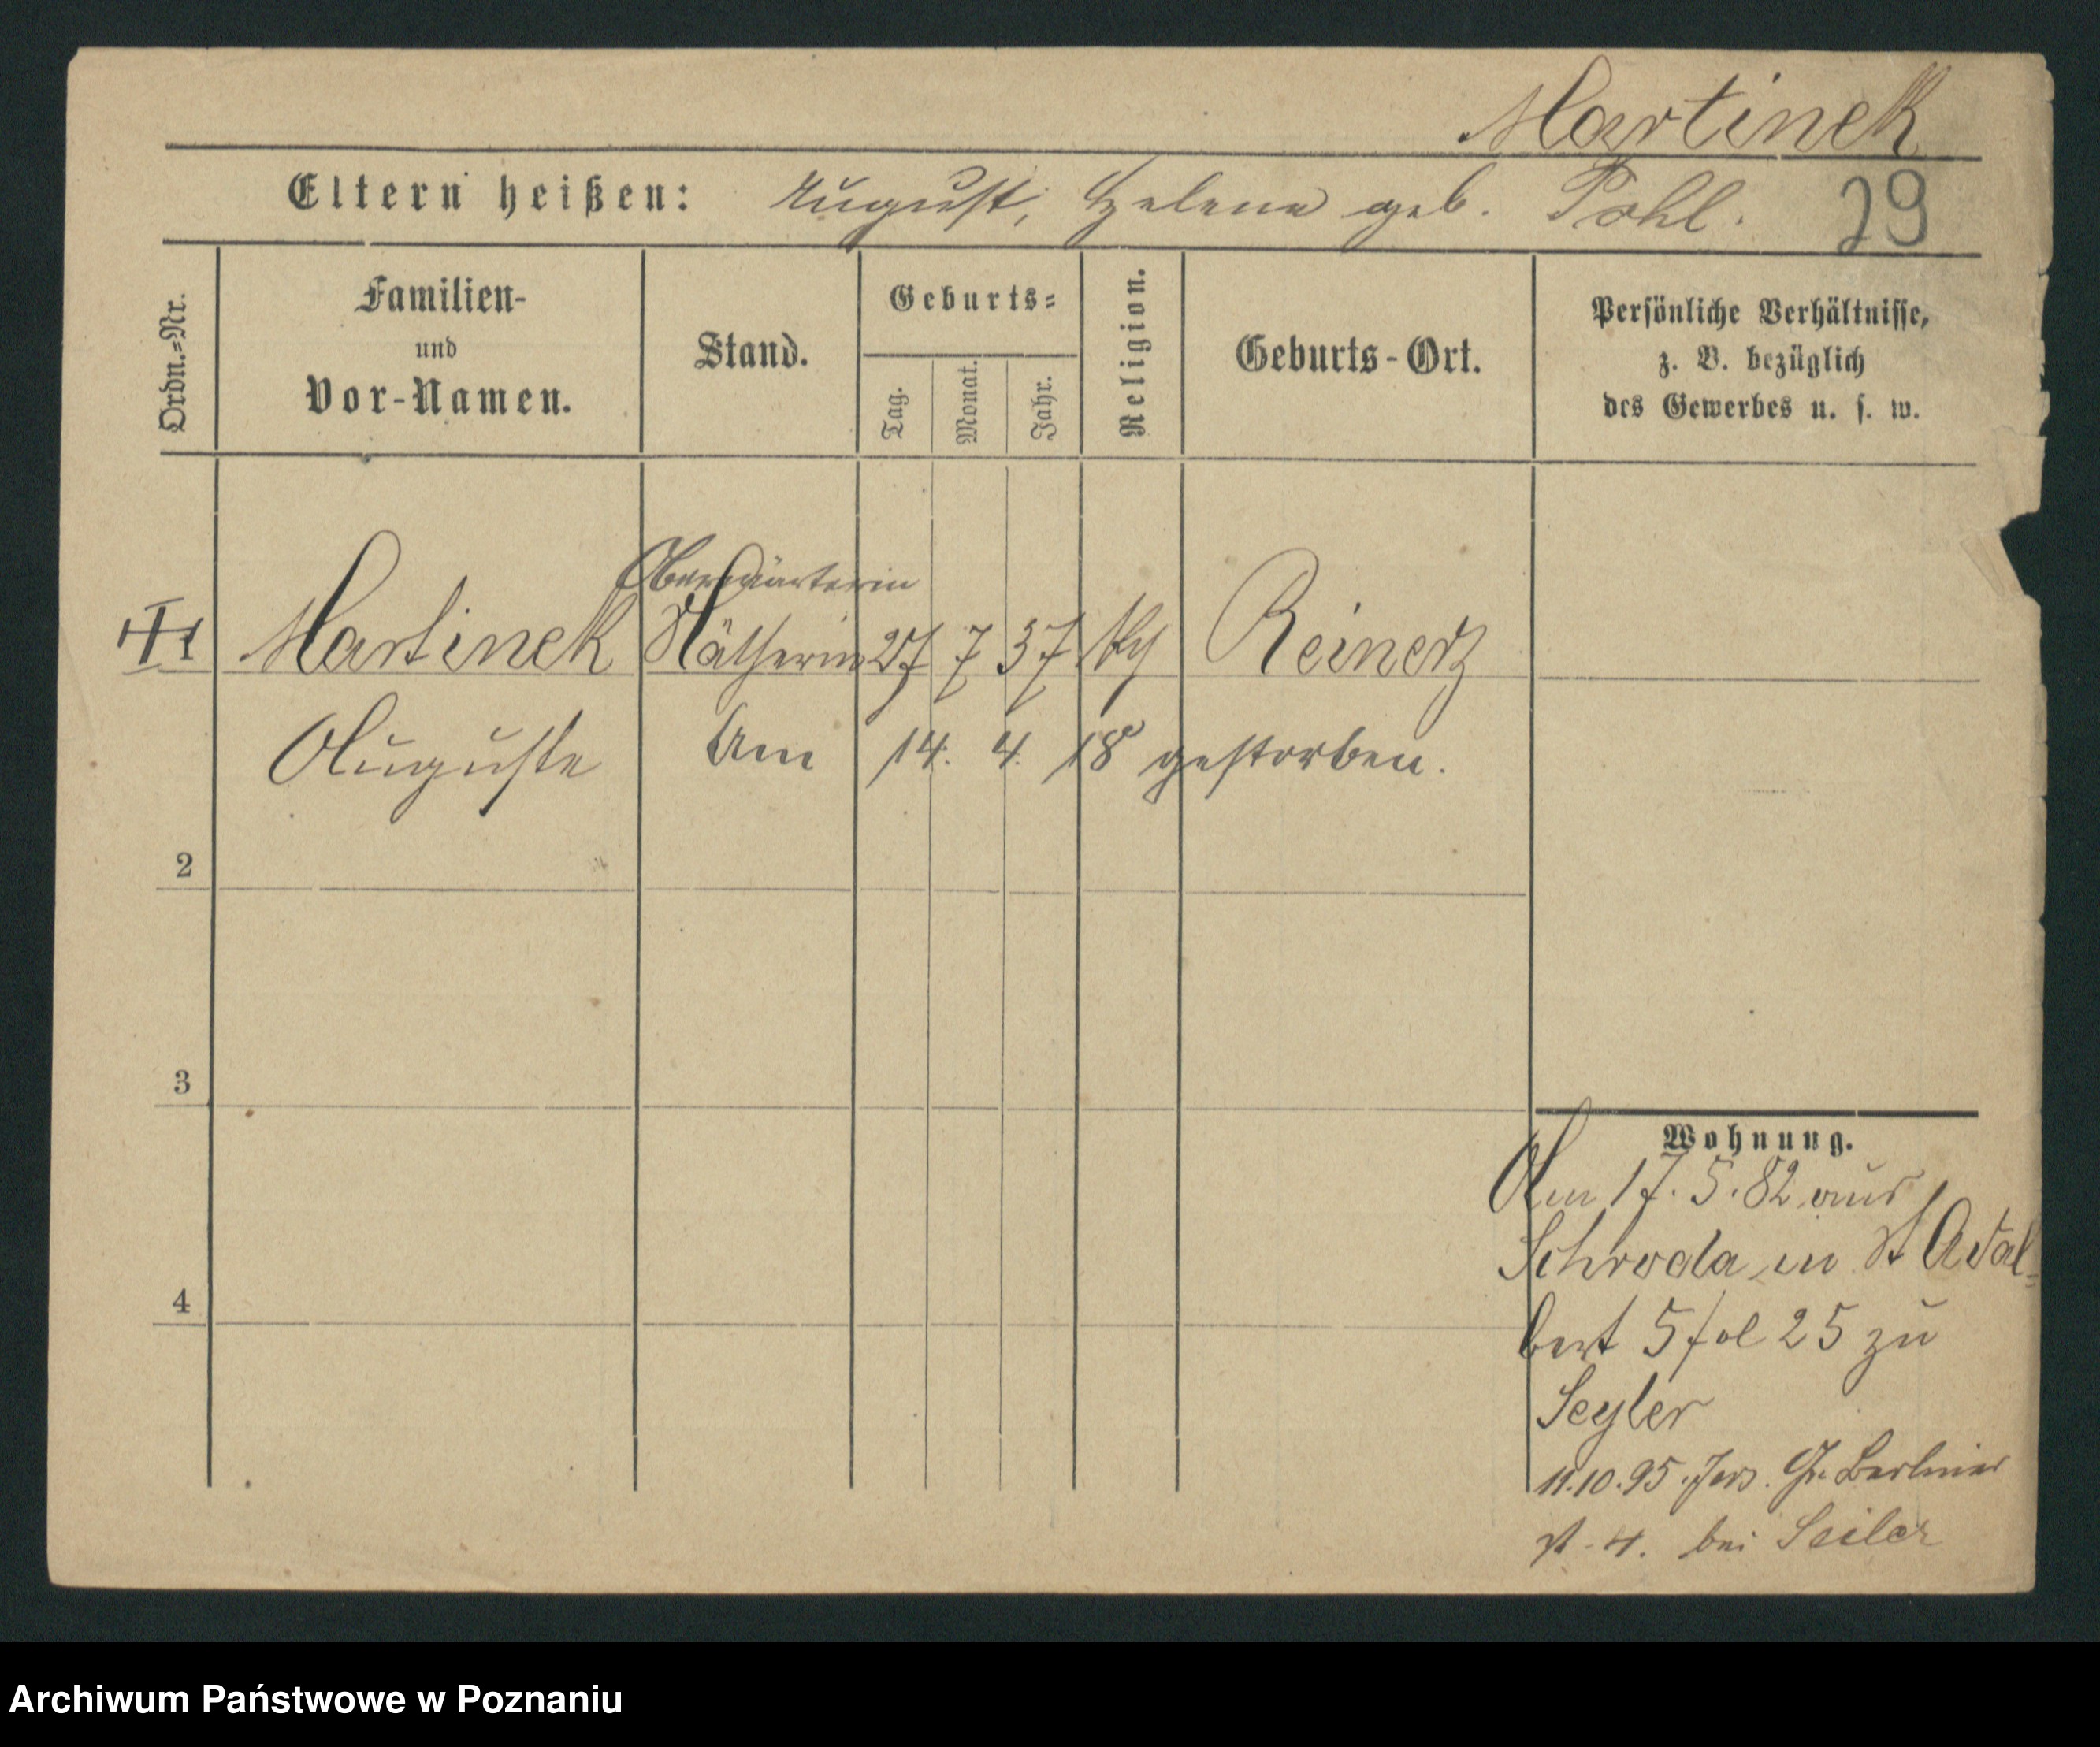 Martinek
Eltern heißen: August, Helene geb. Pohl. 29
Ordn.=Nr.
Familien-
und
Vor-Namen.
Stand.
Geburts=
Tag.
Monat.
Jahr.
Religion.
Geburts-Ort.
Persönliche Verhältnisse,
z. B. bezüglich
des Gewerbes u. s. w.
Oberwärterin
1 Martinek Nätherin 27 7 37 Reinerz
Auguste Am 14. 4. 18 gestorben.
2
3
4
Wohnung.
Am 17. 5. 82 aus
Schroda in St Adal-
bert 5 fol 25 zu
Seyler
11.10.95. Jers. Gr. Berliner
st. 4. bei Seiler
Archiwum Państwowe w Poznaniu